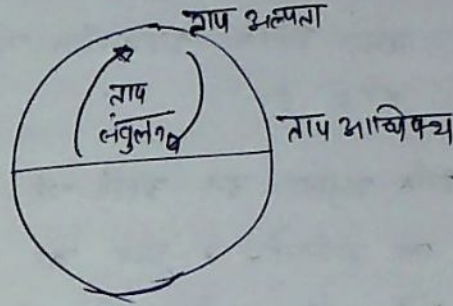 ताप अल्पता
ताप
संतुलन
ताप आधिक्य